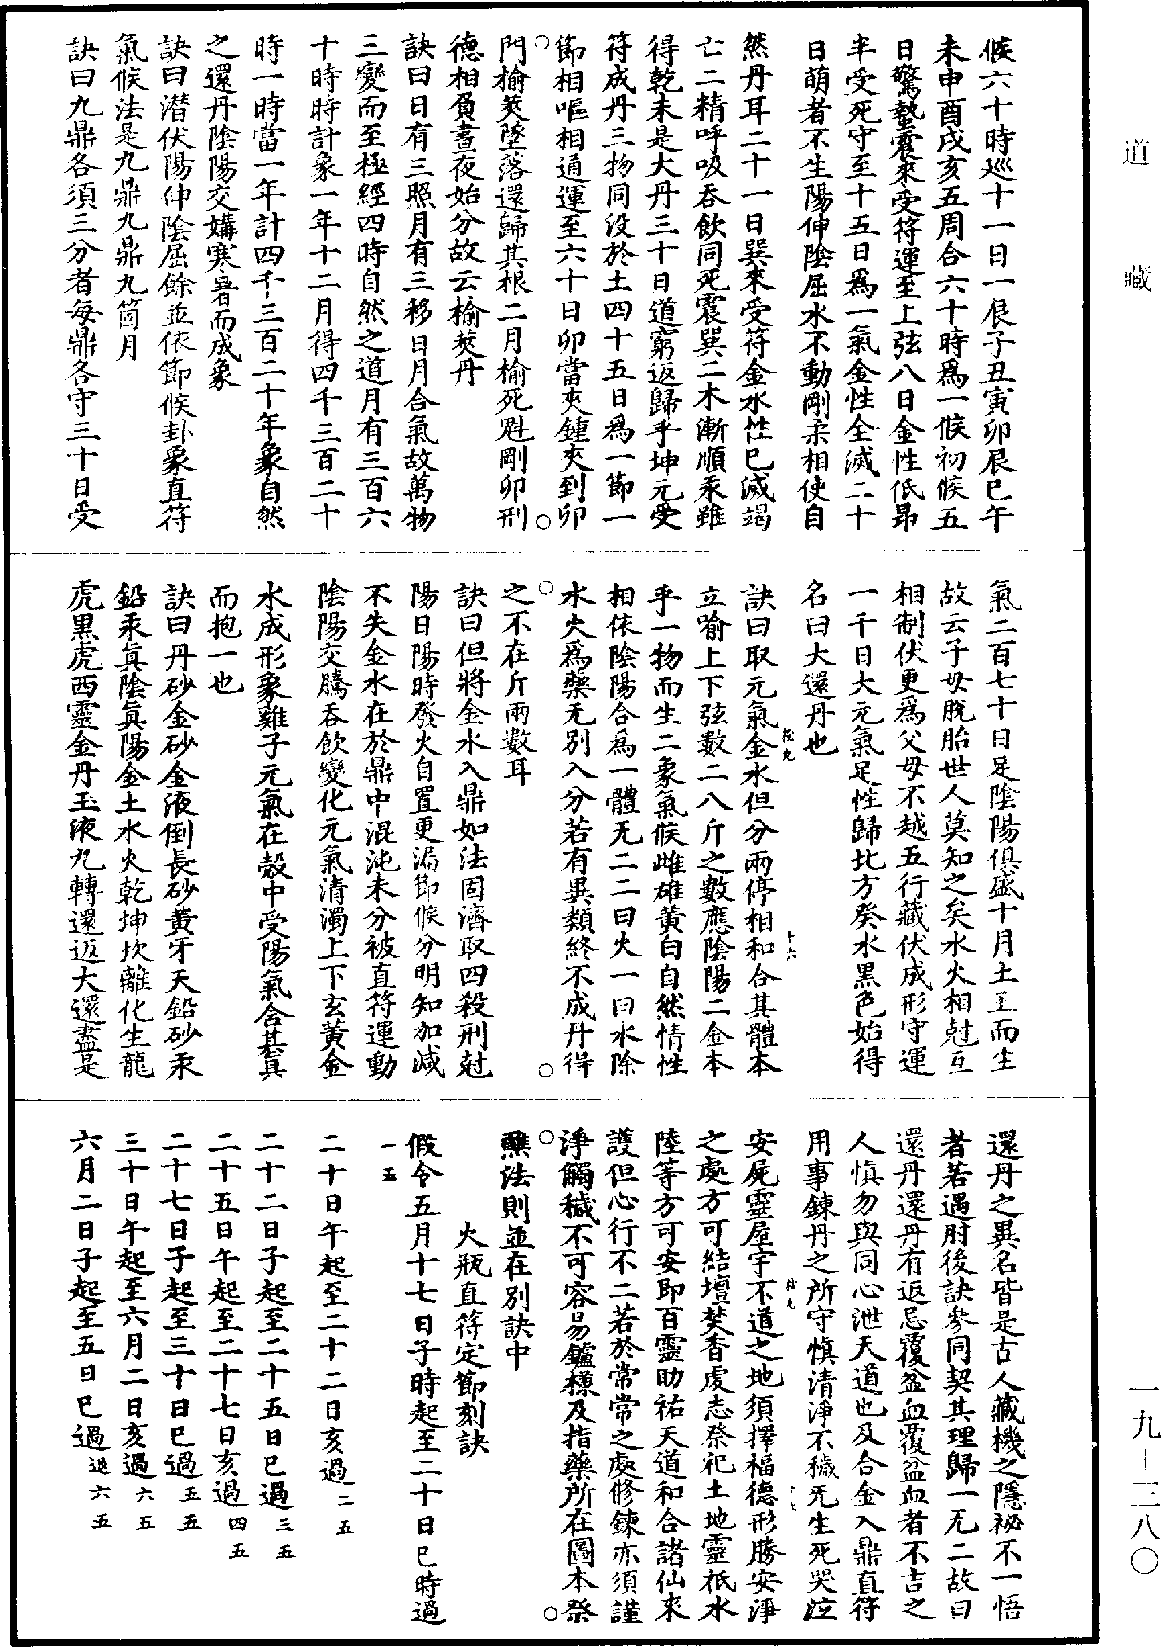 候六十時巡十一日一辰子丑寅卯辰巳午
未申酉戌亥五周合六十時爲一候初候五
日驚蟄震來受符運至上弦八日金性低昂
半受死守至十五日爲一氣金性全滅二十
日萌者不生陽伸陰屈水不動剛柔相使自
然丹耳二十一日巽來受符金水性巳滅竭
亡二精呼吸吞飲同死震巽二木漸順汞雖
得乾未是大丹三十日道窮返歸乎坤元受
符成丹三物同没於土四十五日爲一節一
節相嘔相通運至六十日卯當夾鍾夾到卯
門榆莢墜落還歸其根二月榆死魁剛卯刑
德相負晝夜始分故云榆莢丹
訣曰日有三照月有三移日月合氣故萬物
三變而至極經四時自然之道月有三百六
十時時計象一年十二月得四千三百二十
時一時當一年計四千三百二十年象自然
之還丹陰陽交媾寒暑而成象
訣曰潛伏陽伸陰屈餘並依節候卦象直符
氣候法是九鼎九鼎九箇月
訣曰九鼎各須三分者每鼎各守三十日受
氣二百七十日足陰陽俱盛十月土王而生
故云子母脫胎世人莫知之矣水火相尅互
相制伏更爲父母不越五行藏伏成形守運
一千日大元氣足性歸北方癸水黑色始得
名曰大還丹也
訣曰取元氣金水但分兩停相和合其體本
立喻上下弦數二八斤之數應陰陽二金本
乎一物而生二象氣候雌雄黃白自然情性
相依陰陽合爲一體无二二曰火一曰水除
水火爲藥无別入分若有異類終不成丹得
之不在斤兩數耳
訣曰但將金水入鼎如法固濟取四殺刑尅
陽日陽時發火自置更漏節候分明知加減
不失金水在於鼎中混沌未分被直符運動
陰陽交騰吞飲變化元氣清濁上下玄黃金
水成形象雞子元氣在殼中受陽氣含其真
而抱一也
訣曰丹砂金砂金液倒長砂黃牙天鉛砂汞
鉛汞真陰真陽金土水火乾坤坎離化生龍
虎黑虎西靈金丹玉液九轉還返大還盡是
還丹之異名皆是古人藏機之隱祕不一悟
者若遇肘後訣參同契其理歸一无二故曰
還丹還丹有返忌覆盆血覆盆血者不吉之
人慎勿與同心泄天道也及合金入鼎直符
用事鍊丹之所守慎清淨不穢死生死哭泣
安屍靈屋宇不道之地須擇福德形勝安淨
之處方可結壇焚香虔志祭祀土地靈祇水
陸等方可安即百靈助祐天道和合諸仙來
護但心行不二若於常常之處修鍊亦須謹
淨觸穢不可容易鑪樣及指藥所在圖本祭
醮法則並在別訣中
火瓶直符定節刻訣
假令五月十七日子時起至二十日巳時過
一五
二十日午起至二十二日亥過二五
二十二日子起至二十五日巳過三五
二十五日午起至二十七日亥過四五
二十七日子起至三十日巳過五五
三十日午起至六月二日亥過六五
六月二日子起至五日巳過退六五
道藏
一九－一三八〇